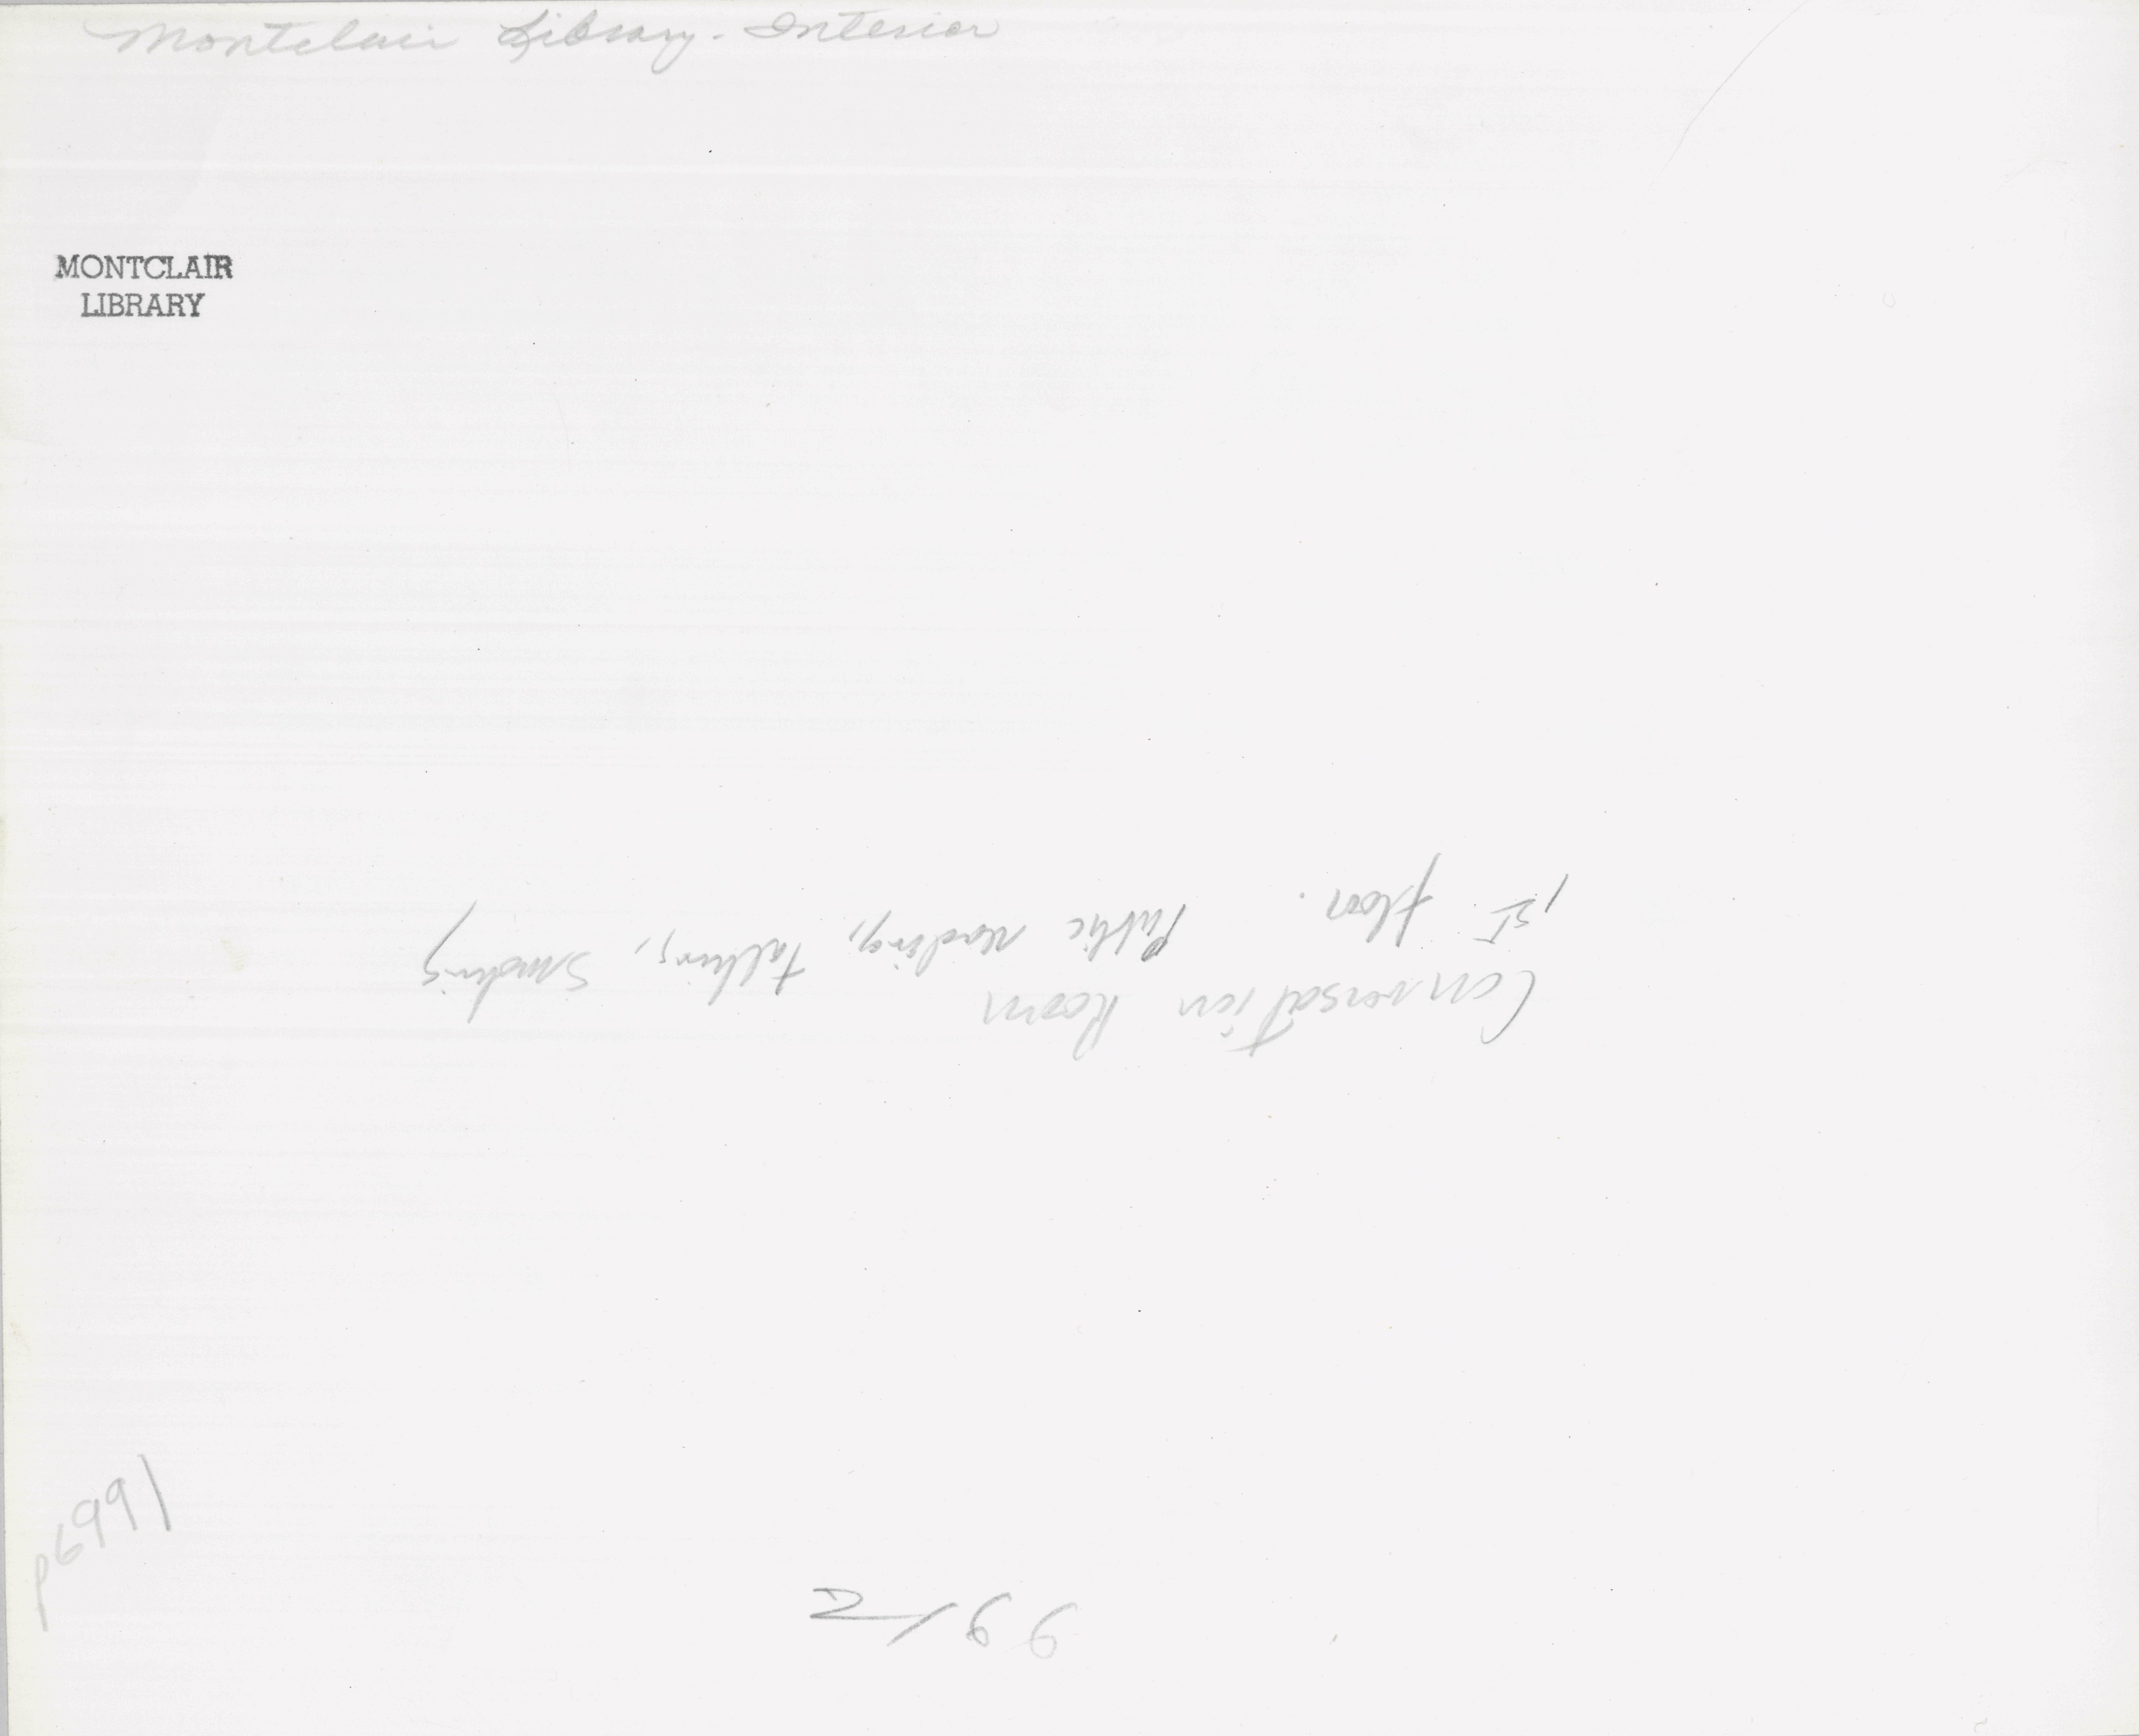 Montclair Library - Interior
MONTCLAIR
LIBRARY
Conversation Room
1st floor. Public reading, talking, smoking
p6991